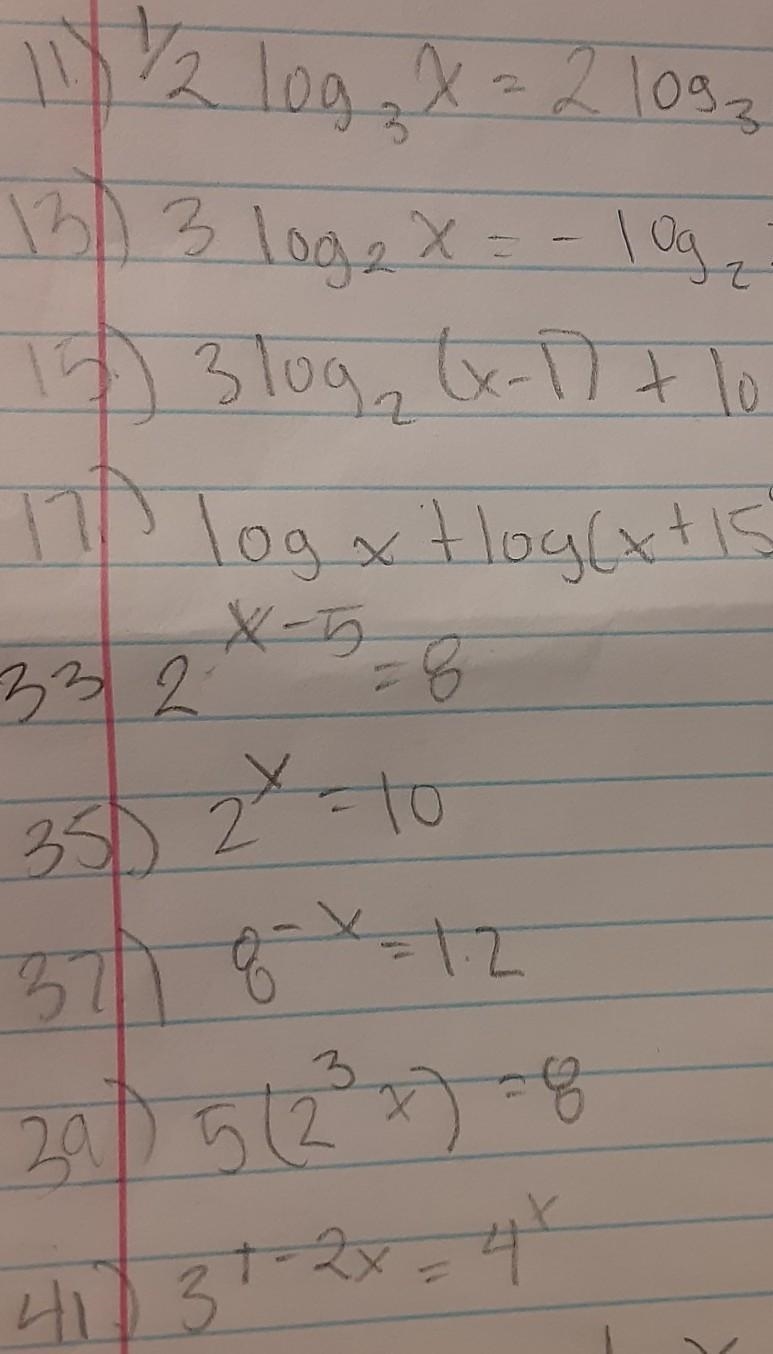 11.) 1/2 log₃ x = 2 log₃
13.) 3 log₂ x = - log₂
15.) 3 log₂ (x-1) + lo
17.) log x + log(x+15
33 2^(x-5) = 8
35.) 2^x = 10
37.) 8^(-x) = 1.2
39.) 5(2³ x) = 8
41.) 3^(1-2x) = 4^x